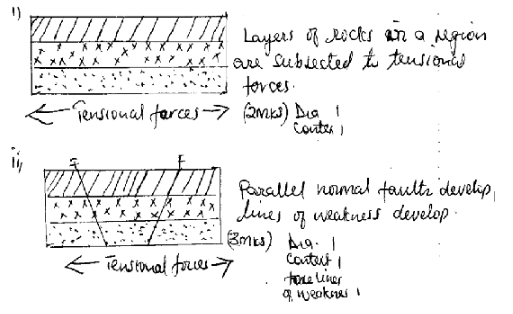 i)
Layers of rocks in a region
are subjected to tensional
forces.
Tensional forces
(2mks) Dia 1
Contex 1
ii)
F F
Parallel normal faults develop,
lines of weakness develop.
(3mks) Dia. 1
Context 1
lines
of weakness 1
Tensional forces